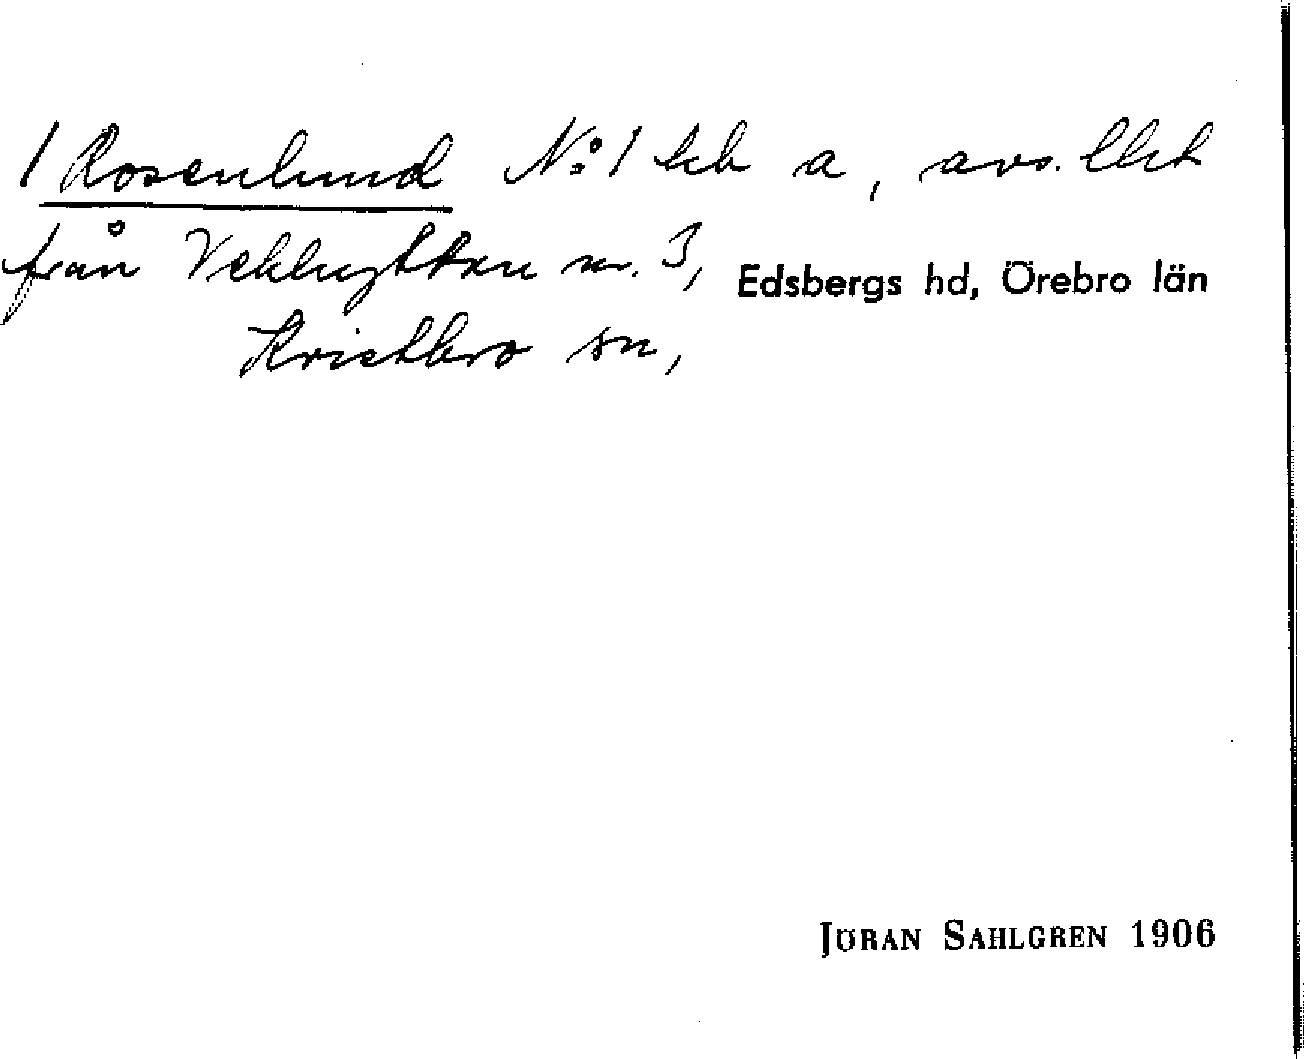 1 Rosenlund N:o 1 lit a, avs. lht
från Vekhyttan nr. 3, Edsbergs hd, Örebro län
Kvistbro sn,
JÖRAN SAHLGREN 1906